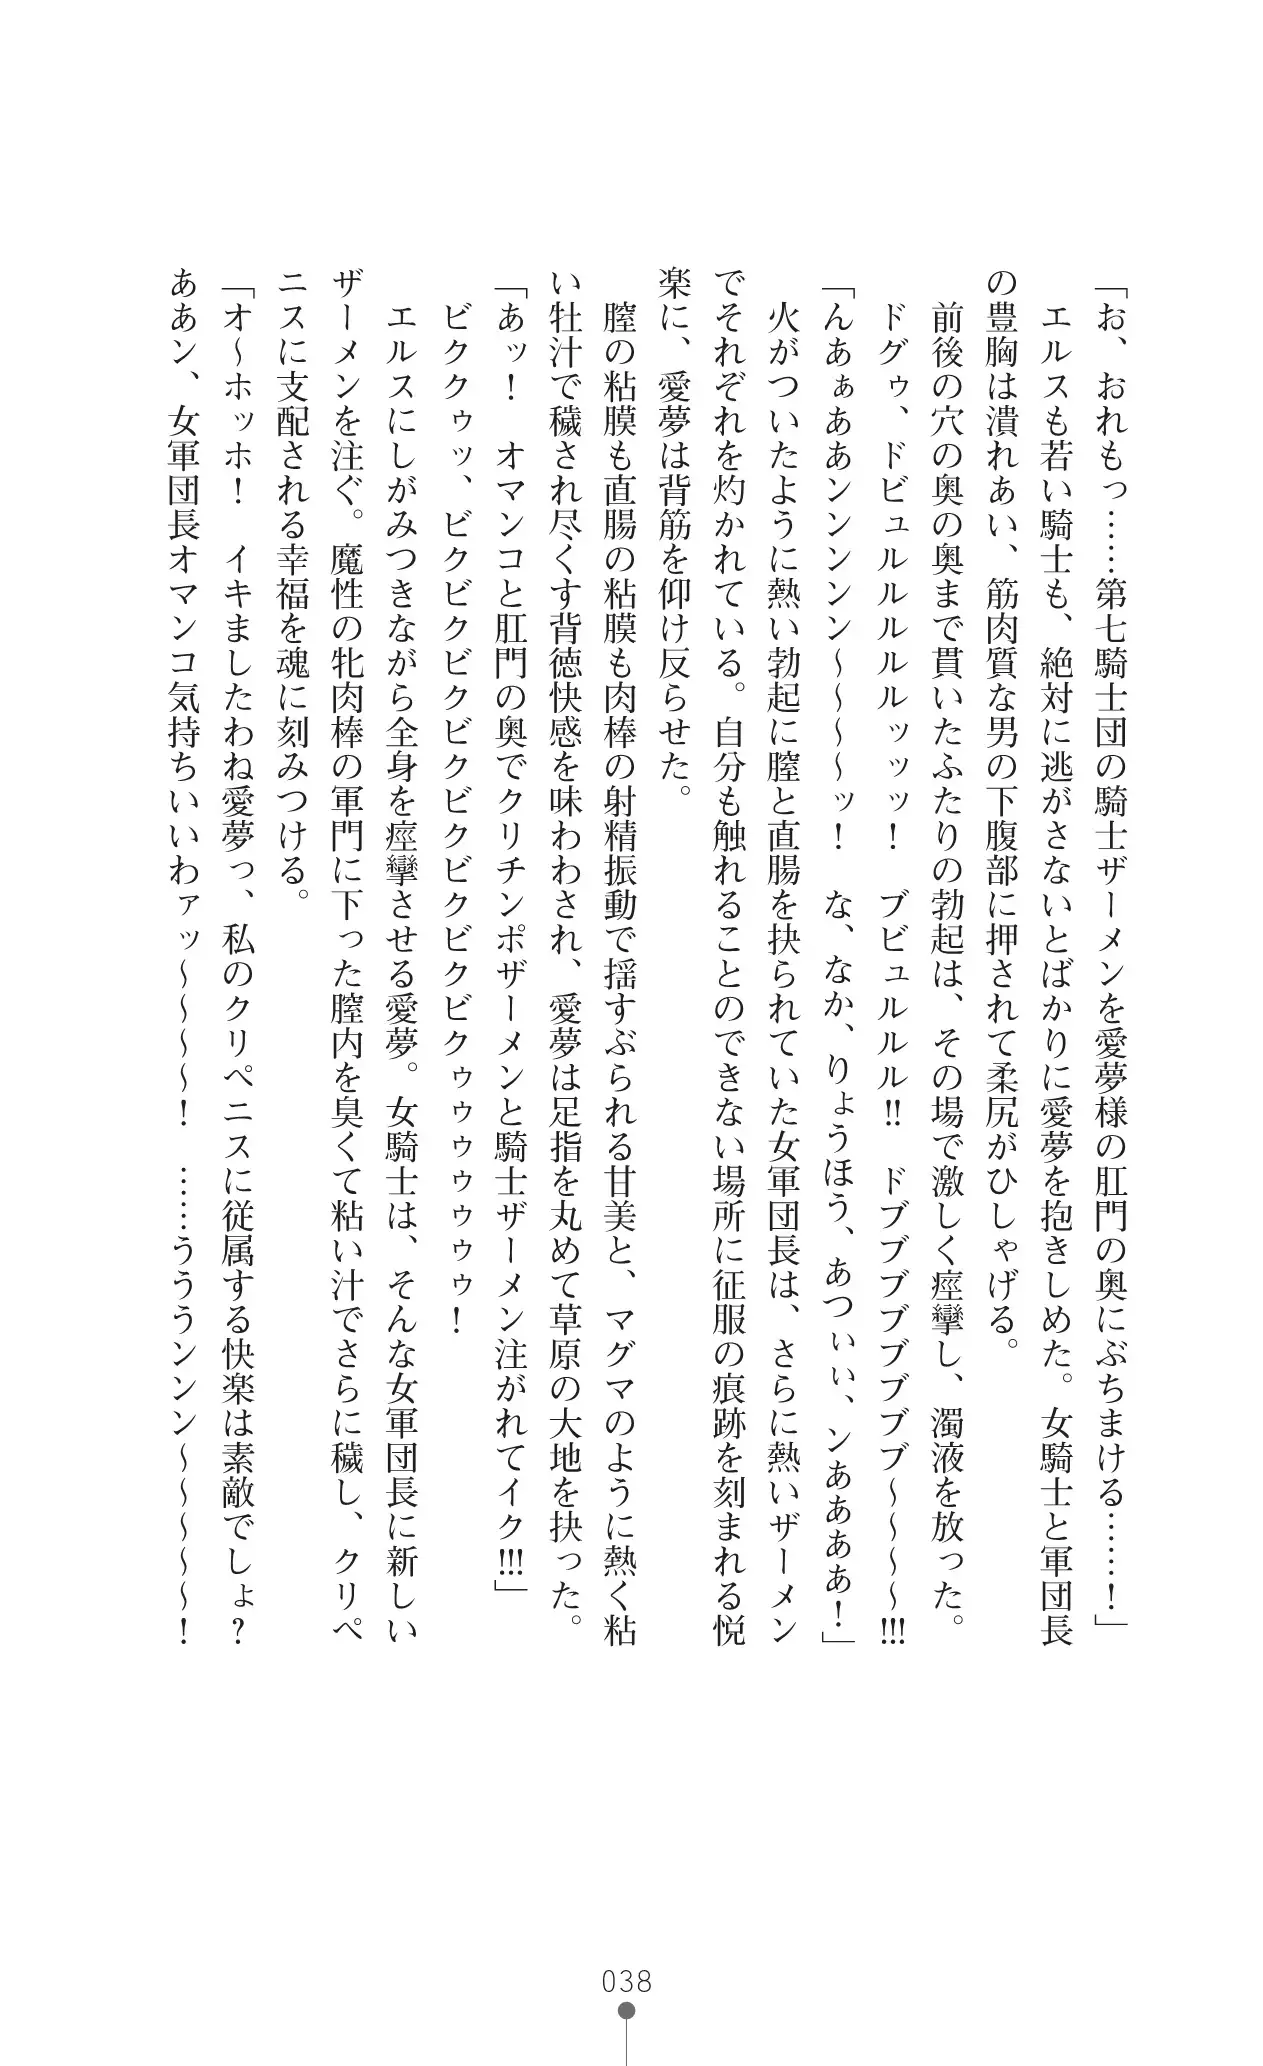 「お、おれもっ……第七騎士団の騎士ザーメンを愛夢様の肛門の奥にぶちまける……！」
　エルスも若い騎士も、絶対に逃がさないとばかりに愛夢を抱きしめた。女騎士と軍団長
の豊胸は潰れあい、筋肉質な男の下腹部に押されて柔尻がひしゃげる。
　前後の穴の奥の奥まで貫いたふたりの勃起は、その場で激しく痙攣し、濁液を放った。
　ドグゥ、ドビュルルルルルッッッ！　ブビュルルル‼　ドブブブブブブブ～～～～!!!
「んあぁああンンンンン～～～～ッ！　な、なか、りょうほう、あつぃぃ、ンああああ！」
　火がついたように熱い勃起に膣と直腸を抉られていた女軍団長は、さらに熱いザーメン
でそれぞれを灼かれている。自分も触れることのできない場所に征服の痕跡を刻まれる悦
楽に、愛夢は背筋を仰け反らせた。
　膣の粘膜も直腸の粘膜も肉棒の射精振動で揺すぶられる甘美と、マグマのように熱く粘
い牡汁で穢され尽くす背徳快感を味わわされ、愛夢は足指を丸めて草原の大地を抉った。
「あッ！　オマンコと肛門の奥でクリチンポザーメンと騎士ザーメン注がれてイク!!!」
　ビククゥッ、ビクビクビクビクビクビクビクビクゥゥゥゥゥゥゥ！
　エルスにしがみつきながら全身を痙攣させる愛夢。女騎士は、そんな女軍団長に新しい
ザーメンを注ぐ。魔性の牝肉棒の軍門に下った膣内を臭くて粘い汁でさらに穢し、クリペ
ニスに支配される幸福を魂に刻みつける。
「オ～ホッホ！　イキましたわね愛夢っ、私のクリペニスに従属する快楽は素敵でしょ？
ああン、女軍団長オマンコ気持ちいいわァッ～～～～～！　……うううンンン～～～～～！
038